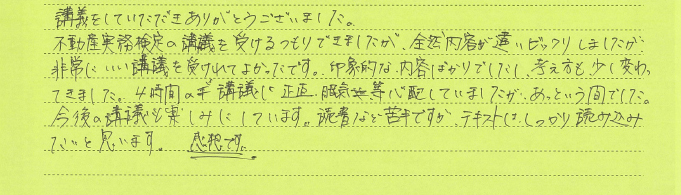 講義をしていただきありがとうございました。
不動産実務検定の講義を受けるつもりできましたが、全然内容が違いビックリしましたが
非常にいい講義を受けれてよかったです。印象的な内容ばかりでしたし、考え方も少し変わっ
てきました。4時間の講義と 正直 眠気等心配していましたが、あっという間でした。
今後の講義も楽しみにしています。読書など苦手ですが、テキストはしっかり読み込み
たいと思います。 感想です。